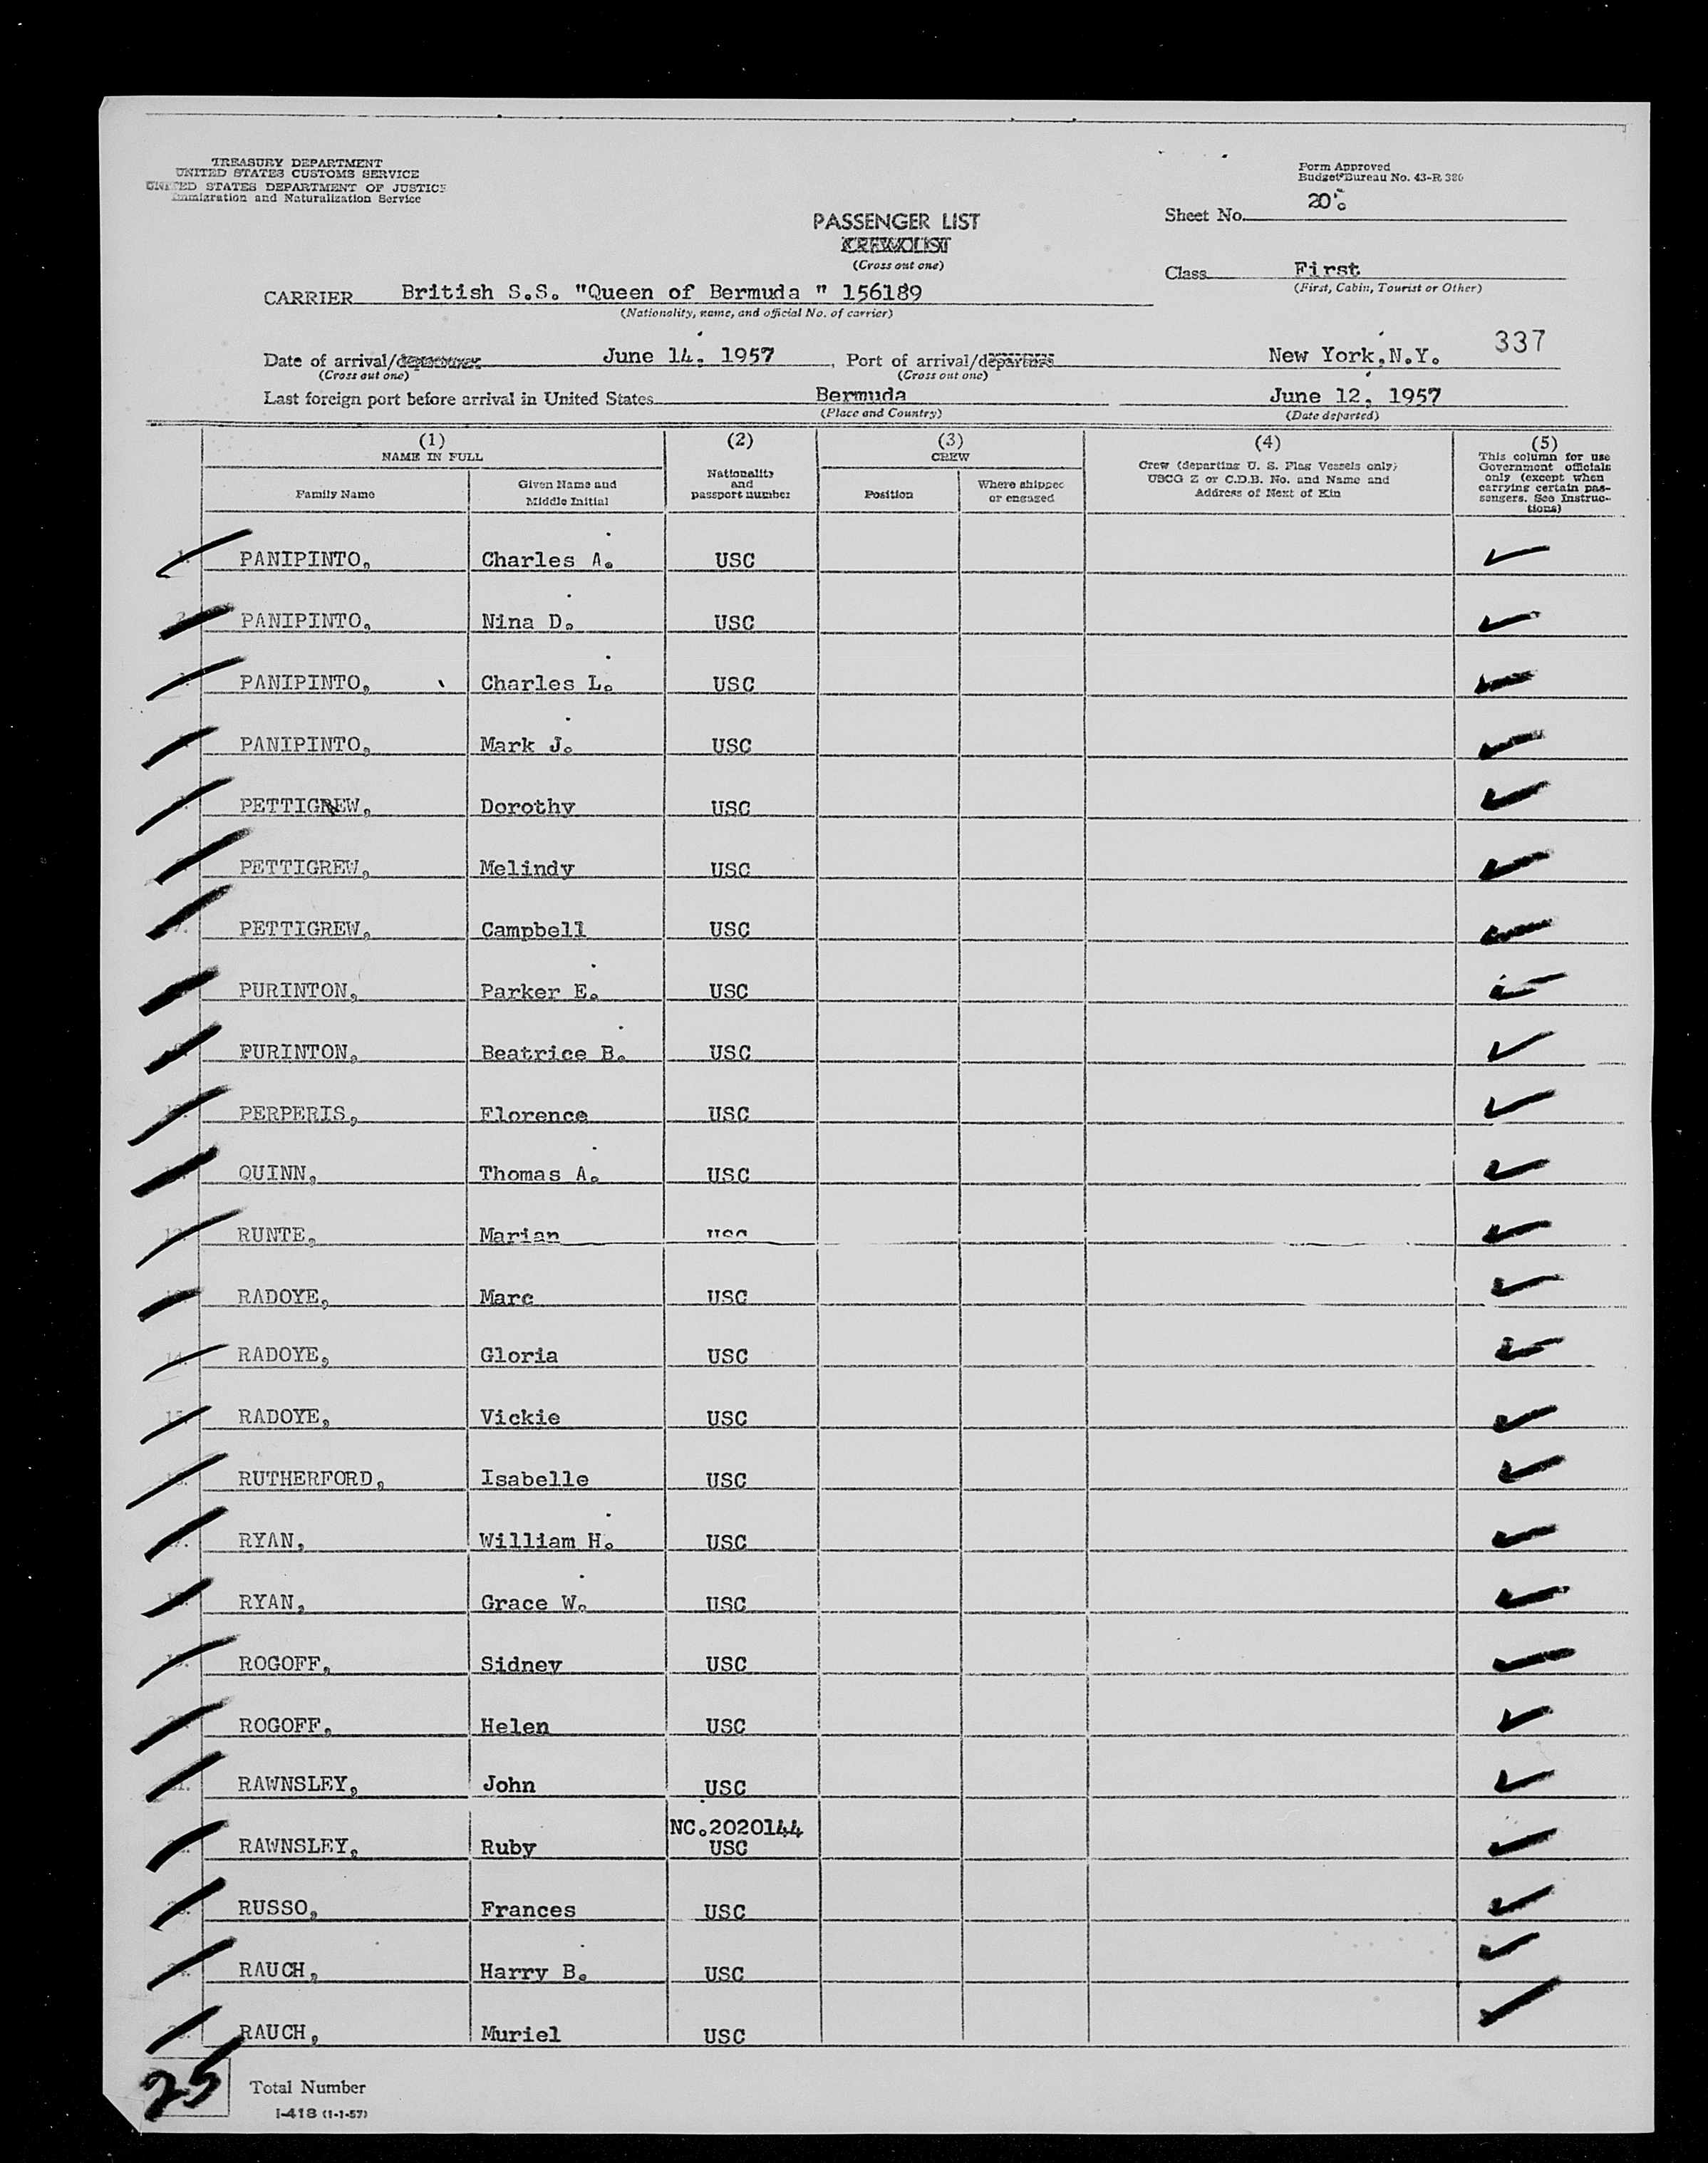 TREASURY DEPARTMENT
UNITED STATES CUSTOMS SERVICE
UNITED STATES DEPARTMENT OF JUSTICE
Immigration and Naturalization Service
Form Approved
Budget Bureau No. 43-R 380
Sheet No. 20
PASSENGER LIST
CREW LIST
(Cross out one)
Class First
(First, Cabin, Tourist or Other)
CARRIER British S.S. "Queen of Bermuda " 156189
(Nationality, name, and official No. of carrier)
337
Date of arrival/departure June 14, 1957, Port of arrival/departure New York, N.Y.
(Cross out one) (Cross out one)
Last foreign port before arrival in United States Bermuda June 12, 1957
(Place and Country) (Date departed)
(1) (2) (3) (4) (5)
NAME IN FULL
Family Name
Given Name and
Middle Initial
Nationality
and
passport number
CREW
Position
Where shipped
or engaged
Crew (departing U. S. Flag Vessels only)
USCG Z or C.D.B. No. and Name and
Address of Next of Kin
This column for use
Government officials
only (except when
carrying certain pas-
sengers. See Instruc-
tions)
PANIPINTO, Charles A. USC
PANIPINTO, Nina D. USC
PANIPINTO, Charles L. USC
PANIPINTO, Mark J. USC
PETTIGREW, Dorothy USC
PETTIGREW, Melindy USC
7. PETTIGREW, Campbell USC
PURINTON, Parker E. USC
PURINTON, Beatrice B. USC
10. PERPERIS, Florence USC
QUINN, Thomas A. USC
12. RUNTE, Marian USC
RADOYE, Marc USC
14. RADOYE, Gloria USC
15. RADOYE, Vickie USC
16. RUTHERFORD, Isabelle USC
17. RYAN, William H. USC
18. RYAN, Grace W. USC
19. ROGOFF, Sidney USC
ROGOFF, Helen USC
21. RAWNSLEY, John USC
NC.2020144
RAWNSLEY, Ruby USC
RUSSO, Frances USC
RAUCH, Harry B. USC
RAUCH, Muriel USC
25 Total Number
I-418 (1-1-57)